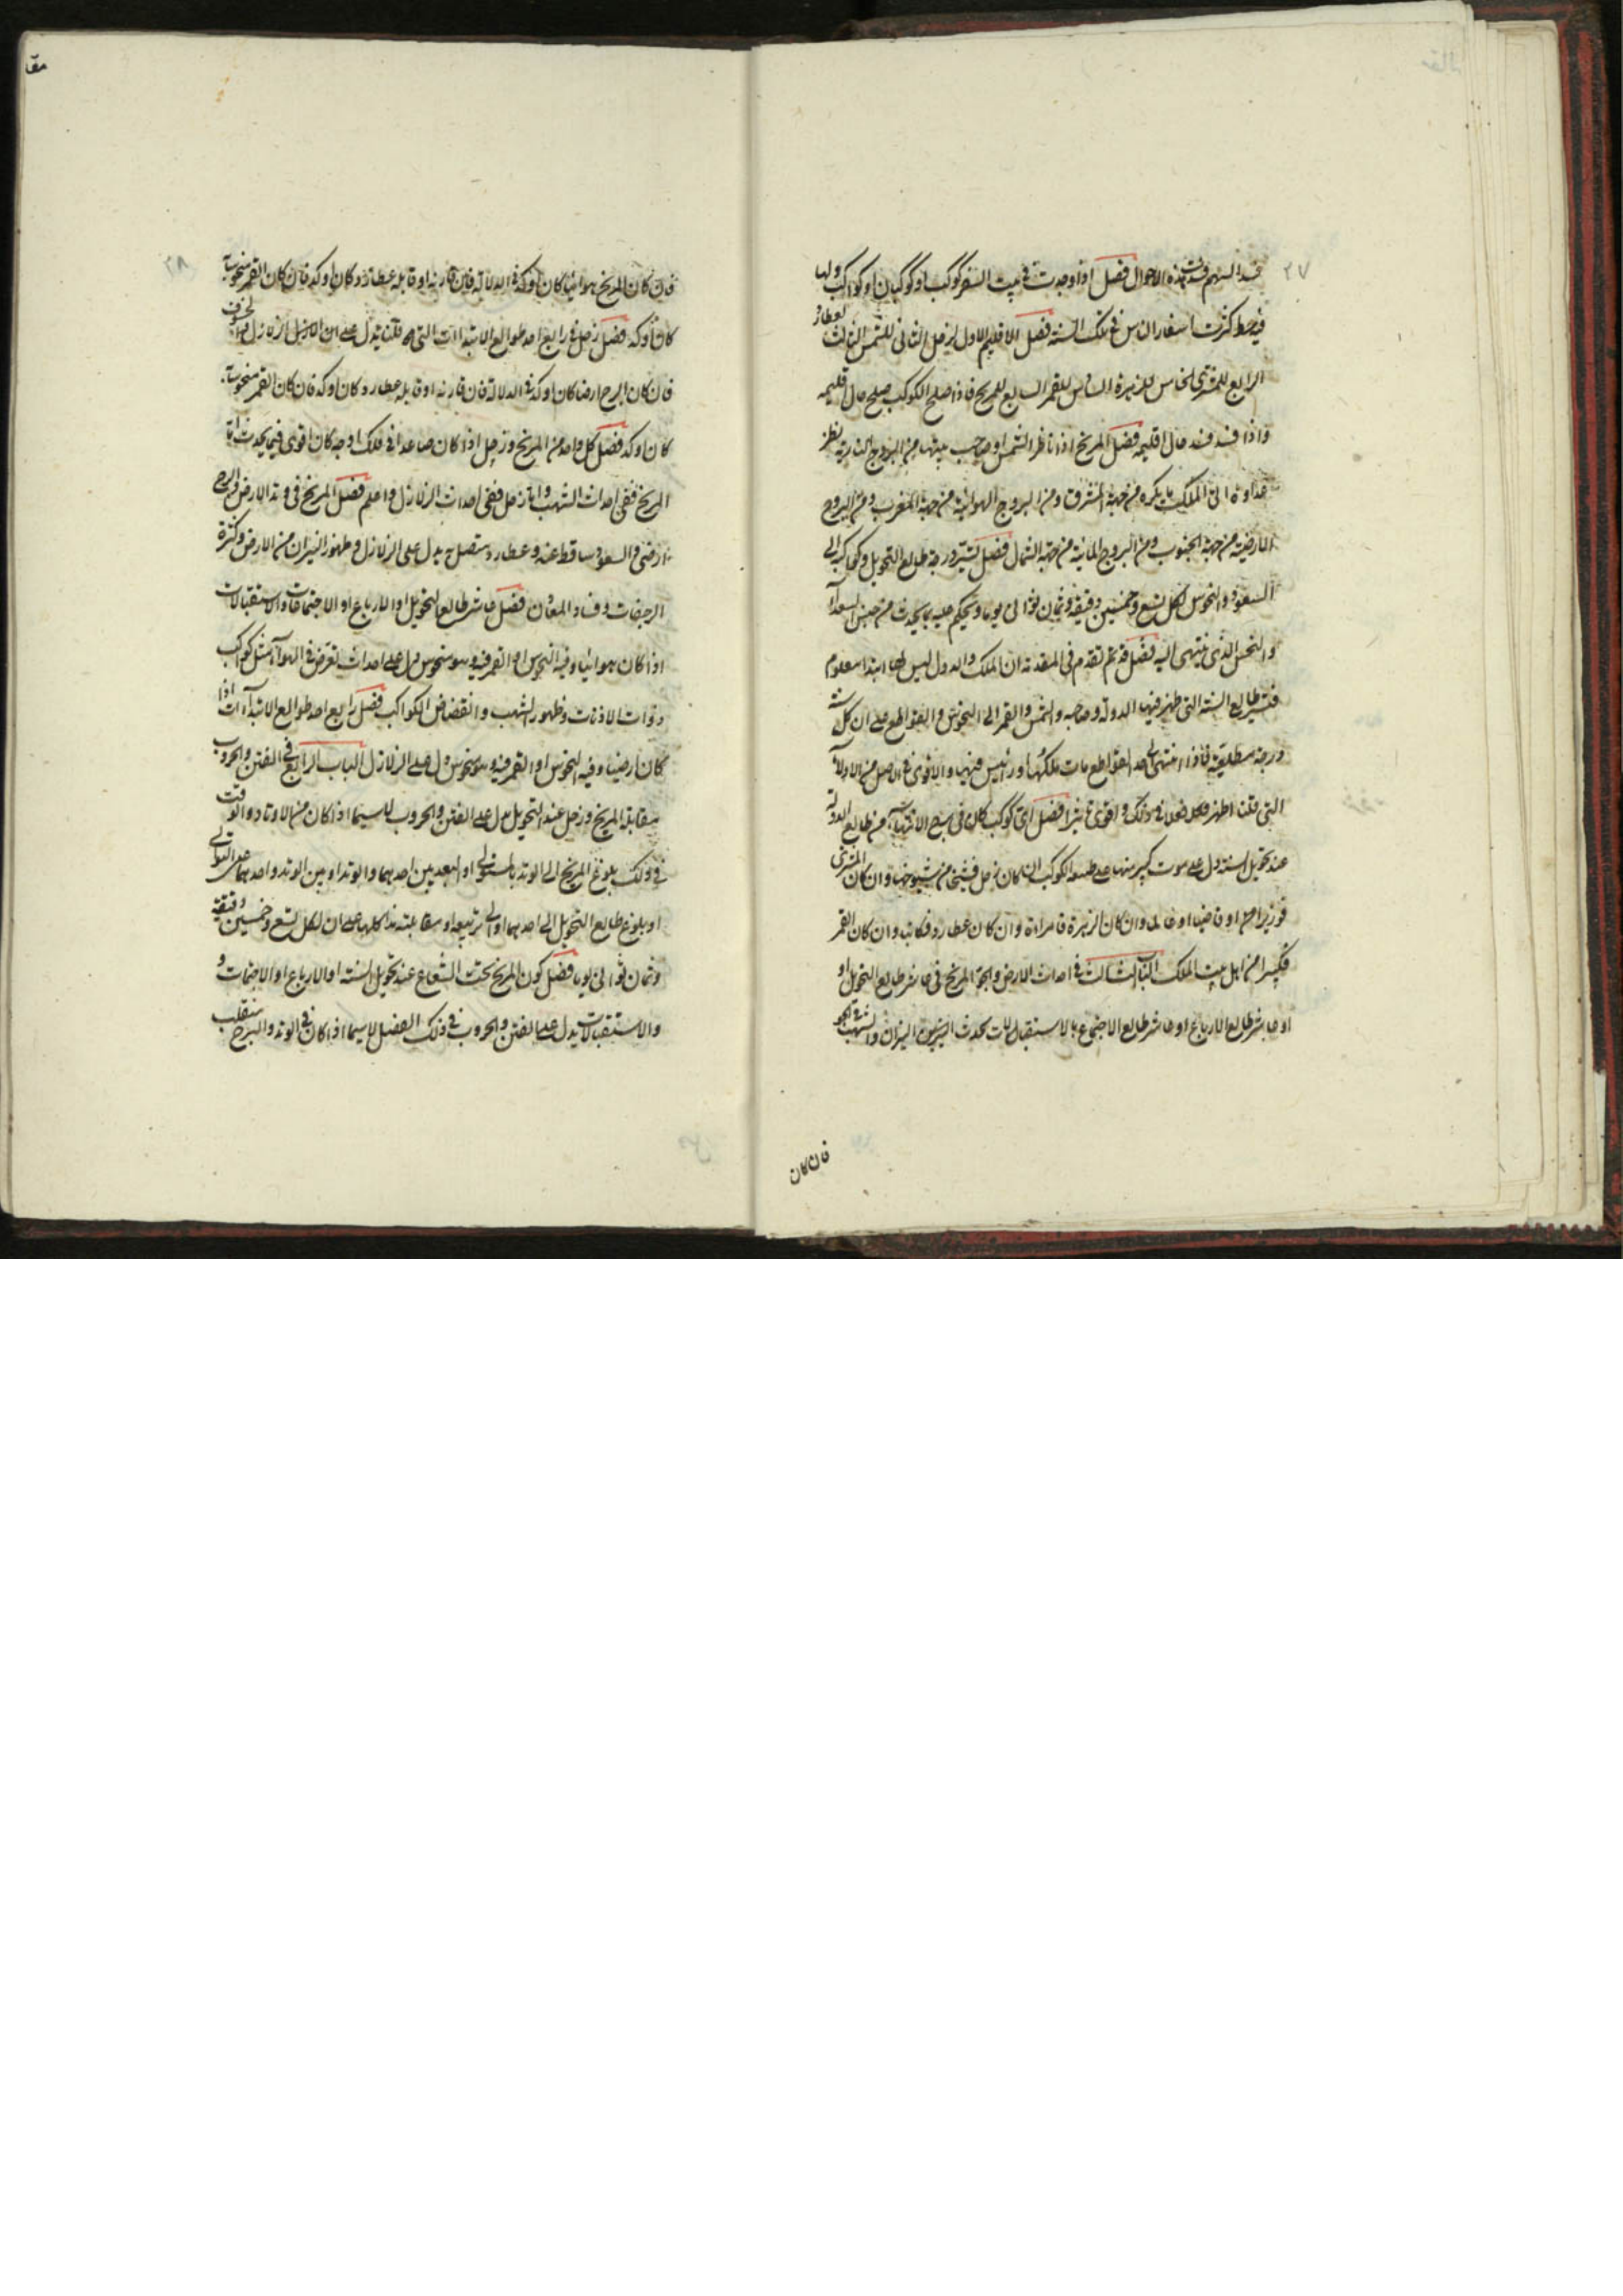 ٢٧
فسد السهم فسدت هذه الاحوال فصل اذا وجدت فى بيت السفر كوكب او كوكبان او كواكب ولها
فيه حظ كثرت اسفار الناس فى تلك السنة فصل الاقليم الاول لزحل الثانى للشمس الثالث لعطارد
الرابع للمشترى الخامس للزهرة السادس للقمر السابع للمريخ فاذا صلح الكوكب صلح حال اقليمه
واذا فسد فسد حال اقليمه فصل المريخ اذا ناظر الشمس او صاحب بيتها من البروج النارية نظر
عداوة اتى الملك ما يكره من جهة المشرق ومن البروج الهوائية من جهة المغرب ومن البروج
الارضية من جهة الجنوب ومن البروج المائية من جهة الشمال فصل تسير درجة طالع التحويل وكواكبه الى
السعود والنحوس لكل تسع وخمسين دقيقة وثمان ثوانى يوما ويحكم عليه بما يحدث من جنس السعد
والنحس الذى ينتهى اليه فصل قد تقدم فى المقدمة ان الملك والدول ليس لها ابتدا معلوم
فتسير طالع السنة التى ظهر فيها الدولة وصاحبه والشمس والقمر الى النحوس والقواطع على ان كل سنة
درجة مطلعية فاذا انتهى الى احد القواطع مات ملكها او رئيس فيها والاقوى فى الاصل من الادلاء
التى قلنا اظهر فعلا فى ذلك واقوى تاثيرا فصل اى كوكب كان فى برج الانتهاء من طالع الدولة
عند تحويل السنة دل على موت كبير منها على طبيعة الكوكب ان كان زحل فشيخا من شيوخها وان كان المشترى
فوزيرا او قاضيا او عالما وان كان الزهرة فامراة وان كان عطارد فكاتب وان كان القمر
فكبيرا من اهل بيت الملك الباب الثالث فى احداث الارض والجو المريخ فى عاشر طالع التحويل او
او عاشر طالع الارباع او عاشر طالع الاجتماع بالاستقبالات يحدث النيران والشهب فى الجو
فان كان
مقا
٢٨
فان كان المريخ هوائيا كان اوكد فى الدلالة فان قارنه او قابله عطارد كان اوكد فان كان القمر منحوسا
كان اوكد فصل زحل فى رابع احد طوالع الابتداات التى قلنا يدل على الزلازل
فان كان البرج ارضيا كان اوكد فى الدلالة فان قارنه او قابله عطارد كان اوكد فان كان القمر منحوسا
كان اوكد فصل كل واحد من المريخ وزحل اذا كان صاعدا فى فلك اوجه كان اقوى فيما يحدث اما
المريخ ففى احداث الشهب واما زحل ففى احداث الزلازل واعلم فصل المريخ فى وتد الارض والبرج
ارضى والسعود ساقط عنه وعطارد متصل به يدل على الزلازل وظهور النيران من الارض وكثرة
الرجفات وفساد المعادن فصل عاشر طالع التحويل او الارباع او الاجتماعات والاستقبالات
اذا كان هوائيا وفيه النحوس او القمر فيه وهو منحوس دل على احداث تعرض فى الهواء مثل كواكب
ذوات الاذناب وظهور الشهب وانقضاض الكواكب فصل رابع احد طوالع الابتداءات اذا
كان ارضيا وفيه النحوس او القمر فيه وهو منحوس دل على الزلازل الباب الرابع فى الفتن والحروب
مقابلة المريخ وزحل عند التحويل يدل على الفتن والحروب لا سيما اذا كان من الاوتاد والوقت
فى ذلك بلوغ المريخ الى الوتد بالسير او البعد بين احدهما والوتد او بين الوتد واحدهما على التوالى
او بلوغ طالع التحويل الى احدهما او الى تربيعه او مقابلته هذا كلها على ان لكل تسع وخمسين دقيقة
وثمان ثوانى يوما فصل كون المريخ تحت الشعاع عند تحويل السنة او الارباع او الاجتماعات و
والاستقبالات يدل على الفتن والحروب فى ذلك الفصل لا سيما اذا كان فى الوتد والبرج منقلب